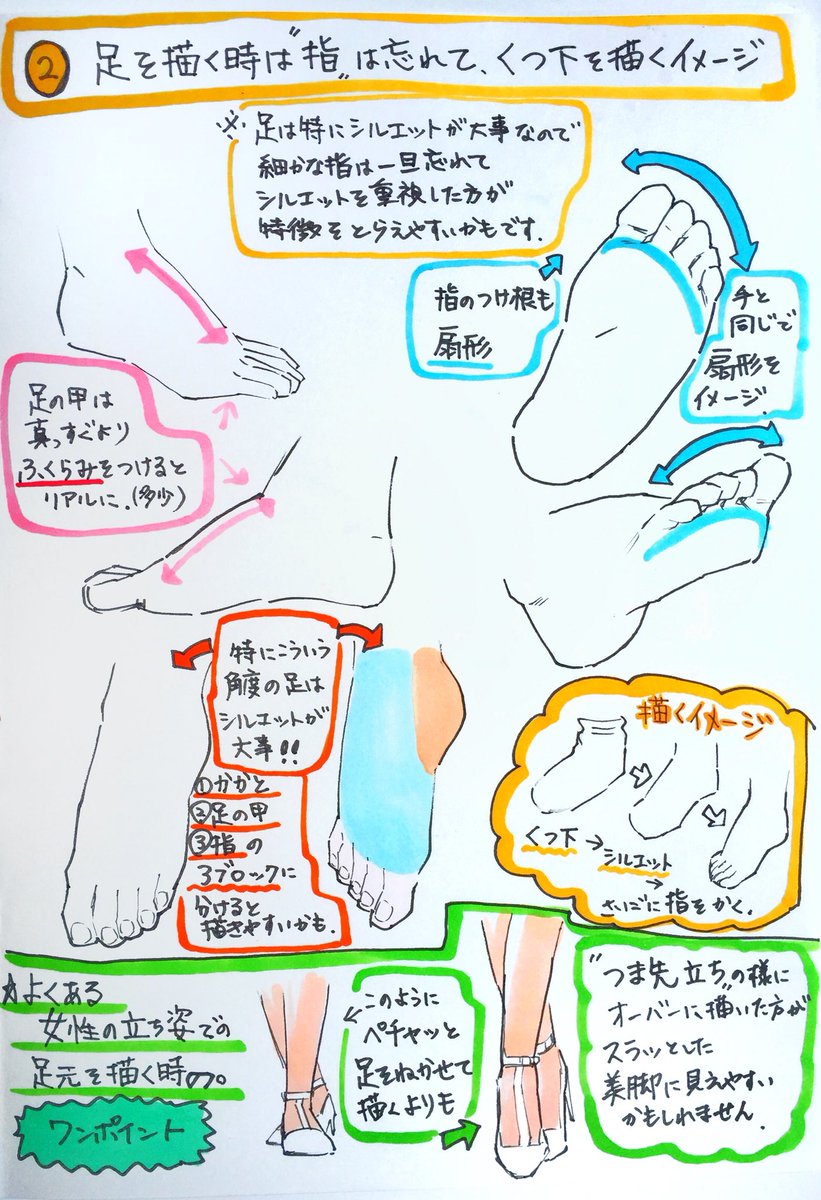 ② 足を描く時は"指"は忘れて、くつ下を描くイメージ
※足は特にシルエットが大事なので
細かな指は一旦忘れて
シルエットを重視した方が
特徴をとらえやすいかもです.
指のつけ根も
扇形
手と
同じで
扇形を
イメージ.
足の甲は
真っすぐより
ふくらみをつけると
リアルに.(多少)
特にこういう
角度の足は
シルエットが
大事!!
①かかと
②足の甲
③指の
3ブロックに
分けると
描きやすいかも.
描くイメージ
くつ下→
シルエット
→
さいごに指をかく.
☆よくある
女性の立ち姿での
足元を描く時の。
ワンポイント
このように
ペチャッと
足をねかせて
描くよりも
"つま先立ち"の様に
オーバーに描いた方が
スラッとした
美脚に見えやすい
かもしれません.